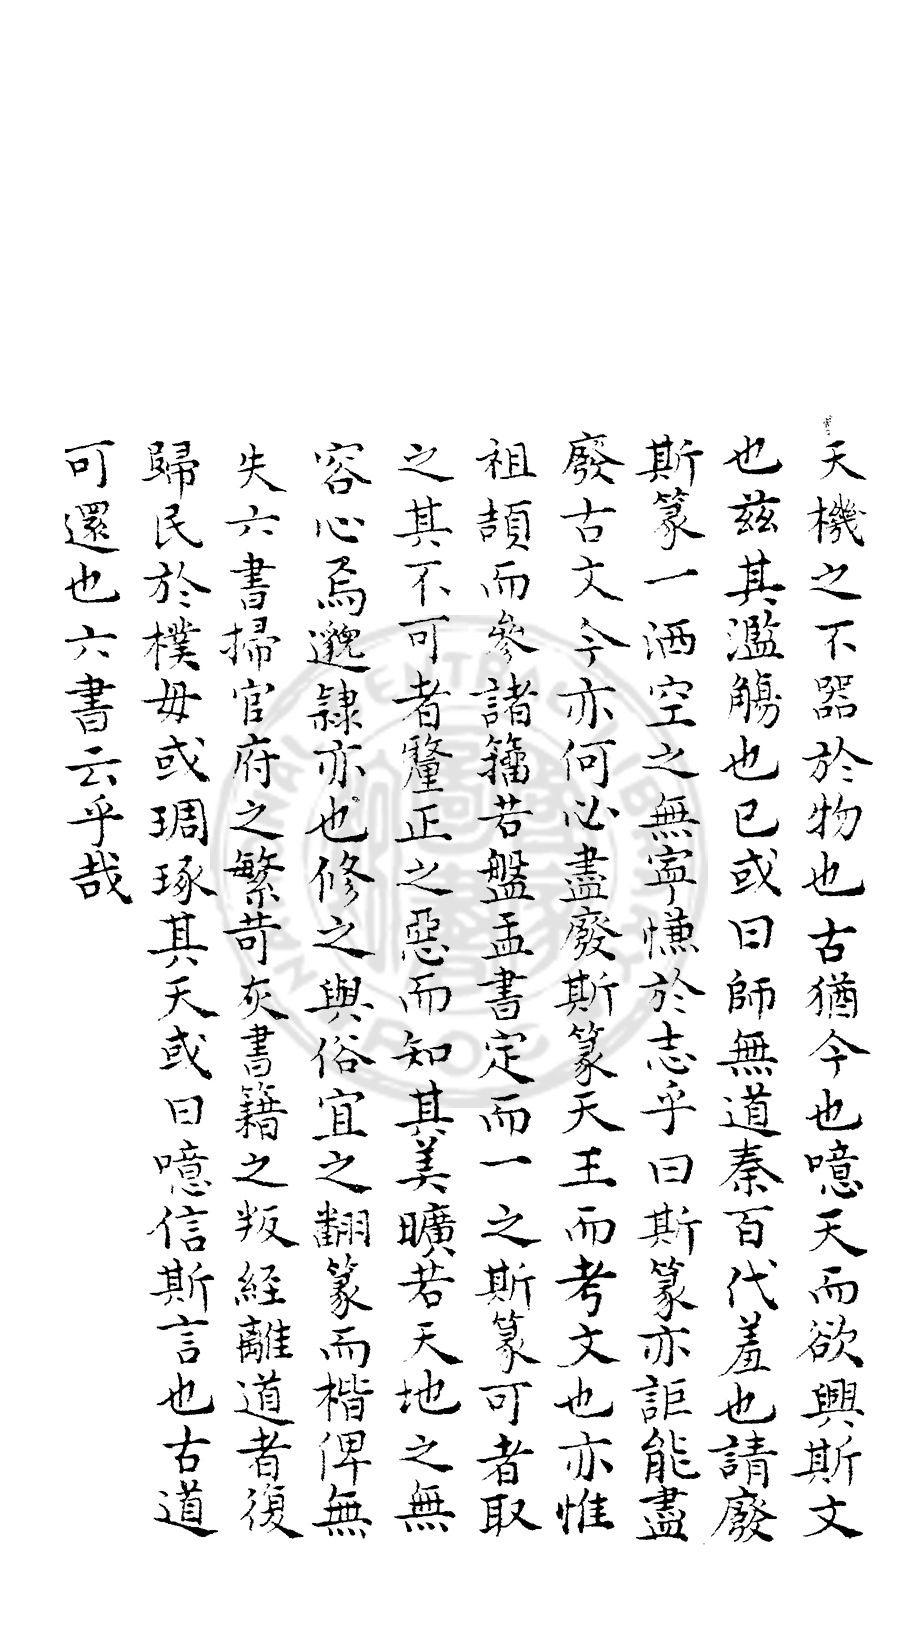 天機之不器於物也古猶今也噫天而欲興斯文
也茲其濫觴也已或曰師無道秦百代羞也請廢
斯篆一洒空之無寧慊於志乎曰斯篆亦詎能盡
廢古文今亦何必盡廢斯篆天王而考文也亦惟
祖頡而參諸籀若盤盂書定而一之斯篆可者取
之其不可者釐正之惡而知其美曠若天地之無
容心焉邈隷亦也修之與俗宜之翻篆而楷俾無
失六書掃官府之繁苛灰書籍之叛経離道者復
歸民於樸毋或琱琢其天或曰噫信斯言也古道
可還也六書云乎哉